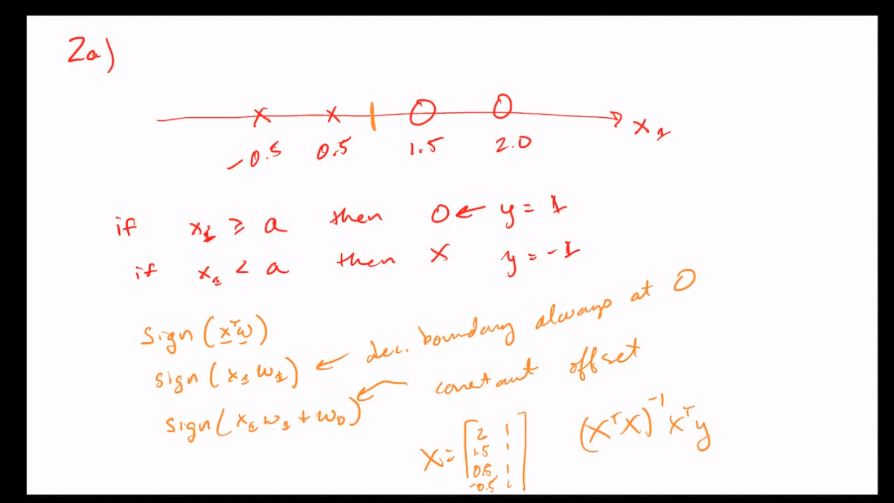 2a)
x x | O O
-0.5 0.5 1.5 2.0 x₁
if x₁ ≥ a then O ← y = 1
if x₁ < a then X y = -1
sign(xᵀw)
sign(x₁w₁) ← dec. boundary always at 0
sign(x₁w₁ + w₀) ← constant offset
X = [2 1
1.5 1
0.5 1
-0.5 1]
(XᵀX)⁻¹ Xᵀy